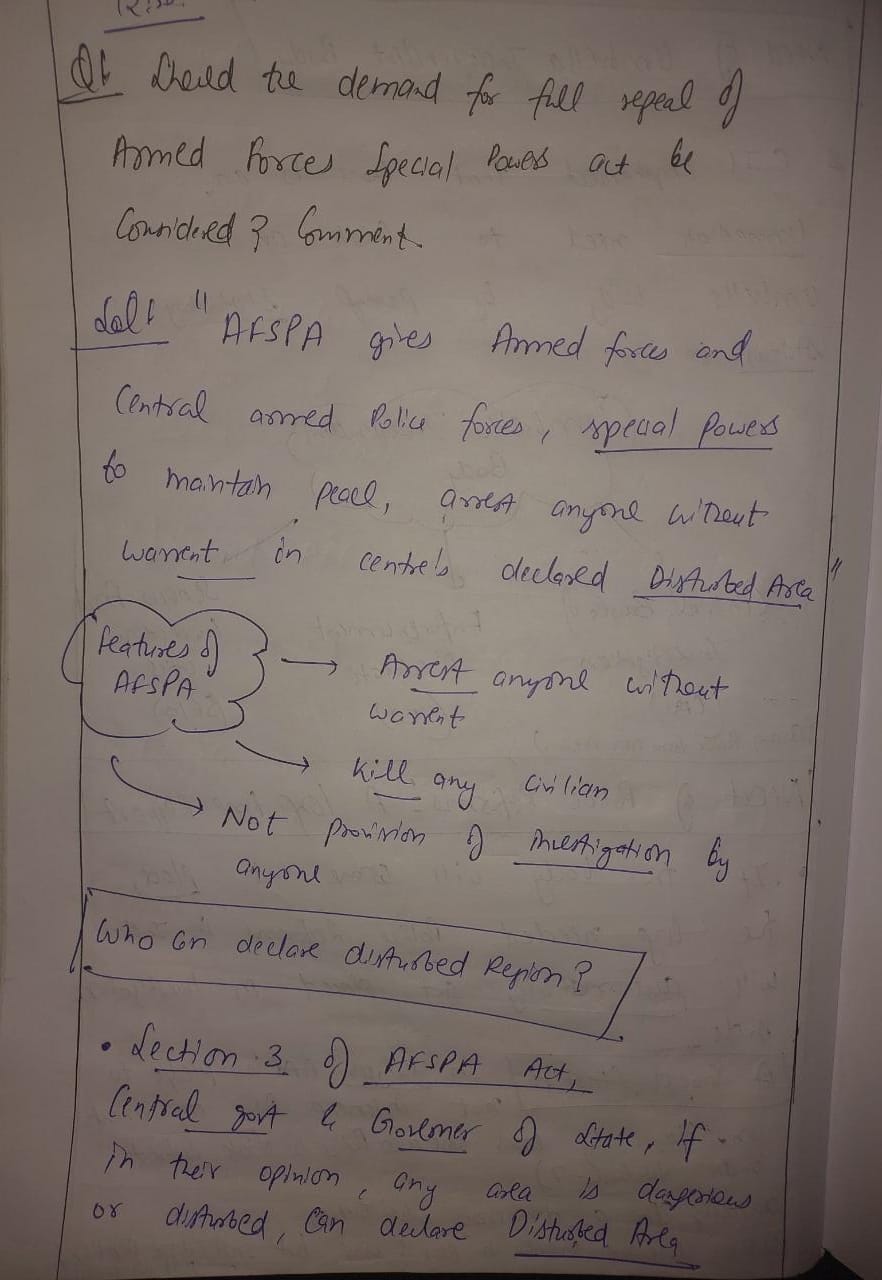 Q1 Should the demand for full repeal of
Armed Forces Special Powers act be
Considered ? Comment.
Sol: " AFSPA gives Armed forces and
Central armed Police forces, special Powers
to maintain peace, arrest anyone without
warrent in centre's declared Disturbed Area "
features of AFSPA
→ Arrest anyone without
warrent
→ Kill any Civilian
→ Not provision of investigation by
anyone
Who can declare disturbed Region ?
• Section 3 of AFSPA Act,
Central govt & Governer of State, if
in their opinion, any area is dangerious
or disturbed, can declare Disturbed Area